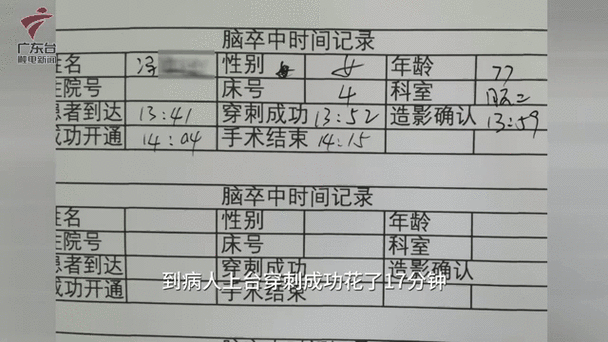 广东台
触电新闻
脑卒中时间记录
姓名 性别 女 年龄 77
住院号 床号 4 科室 脑二
患者到达 13:41 穿刺成功 13:52 造影确认 13:59
成功开通 14:04 手术结束 14:15
脑卒中时间记录
姓名 性别 年龄
住院号 床号 科室
患者到达 穿刺成功 造影确认
成功开通 手术结束
到病人上台穿刺成功花了17分钟